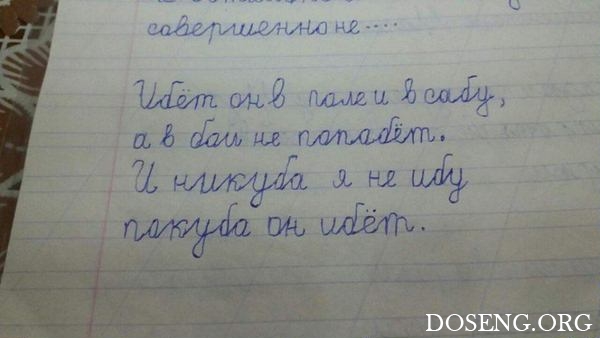 совершенно не....
Ибёт он в поле и в сабу,
а в бом не попабёт.
И никуба я не ибу
покуба он ибёт.
DOSENG.ORG